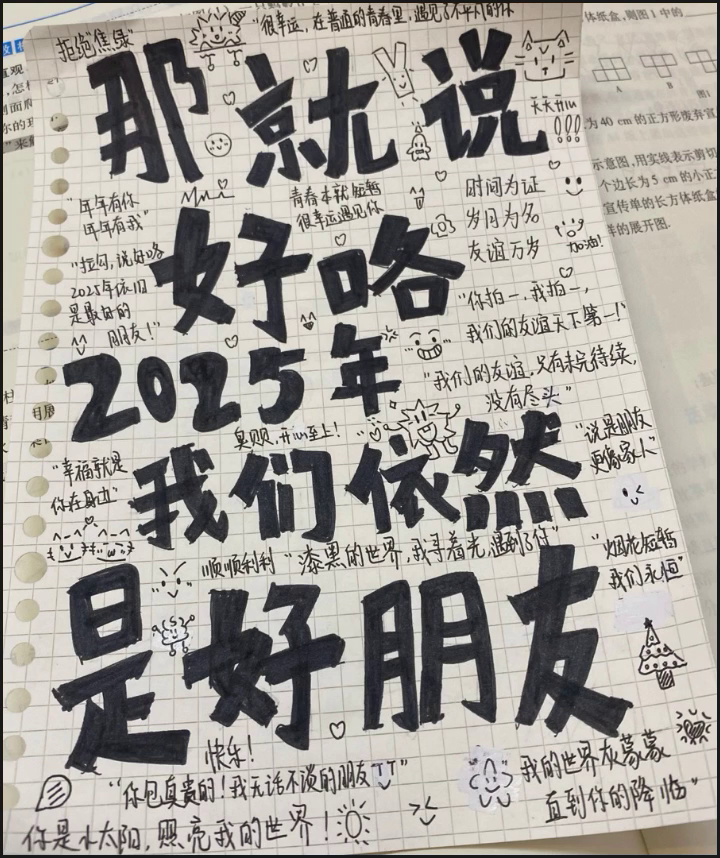 拒绝焦绿
"很幸运，在普通的青春里，遇见了不平凡的你
那就说
天天开心
!!!
"年年有你
年年有我"
青春本就短暂
很幸运遇见你
时间为证
岁月为名
友谊万岁
加油!
好咯
"拉勾，说好咯
2025年依旧
是最好的
朋友!"
"你拍一，我拍一，
我们的友谊天下第一!"
2025年
"我们的友谊，只有未完待续，
没有尽头"
臭贝贝，开心至上!
"说是朋友
更像家人"
"幸福就是
你在身边"
我们依然
顺顺利利
"漆黑的世界，我寻着光，遇到了你"
"烟花短暂
我们永恒"
是好朋友
快乐!
"你包真贵的!我无话不谈的朋友"
我的世界灰蒙蒙
直到你的降临"
你是小太阳，照亮我的世界!
体纸盒，则图1中的
A
B
图1
为40 cm的正方形废弃宣
示意图，用实线表示剪切
个边长为5 cm的小正
宣传单的长方体纸盒
样的展开图.